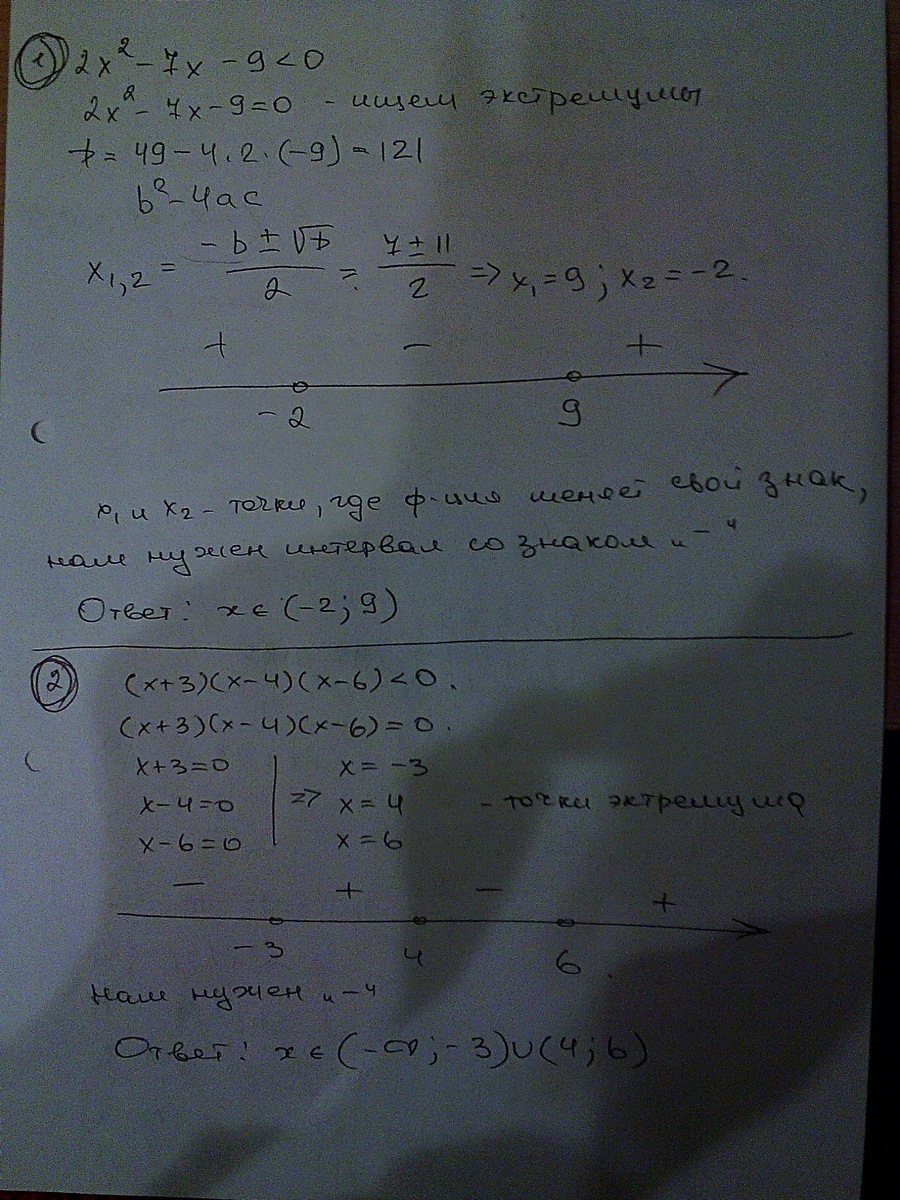 1 2x² - 7x - 9 < 0
2x² - 7x - 9 = 0 - ищем экстремумы
D = 49 - 4·2·(-9) = 121
b² - 4ac
x₁,₂ = (-b ± √D)/2 = (7 ± 11)/2 => x₁ = 9; x₂ = -2.
+ - +
-2 9
x₁ и x₂ - точки, где ф-ция меняет свой знак,
нам нужен интервал со знаком „-“
Ответ: x ∈ (-2; 9)
2 (x+3)(x-4)(x-6) < 0.
(x+3)(x-4)(x-6) = 0.
x+3=0 | x = -3
x-4=0 | => x = 4 - точки экстремума
x-6=0 | x = 6
- + - +
-3 4 6.
Нам нужен „-“
Ответ: x ∈ (-∞; -3)∪(4; 6)